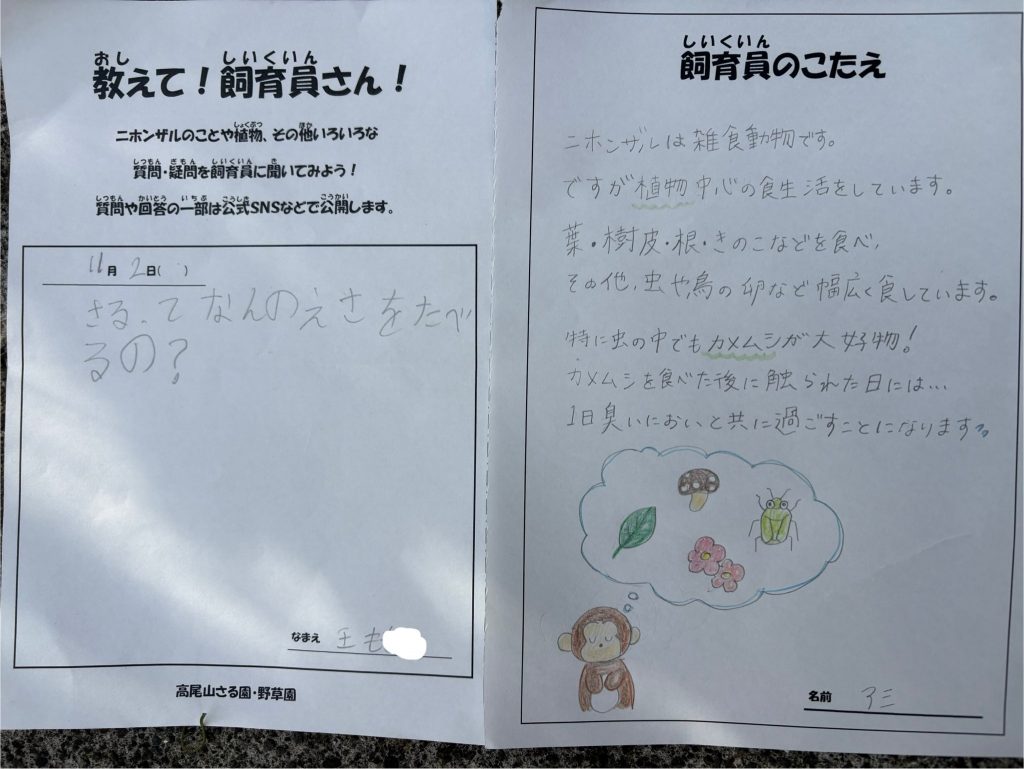 教えて！飼育員さん！
おし しいくいん
ニホンザルのことや植物、その他いろいろな
しょくぶつ ほか
質問・疑問を飼育員に聞いてみよう！
しつもん ぎもん しいくいん き
質問や回答の一部は公式SNSなどで公開します。
しつもん かいとう いちぶ こうしき こうかい
11月 2日( )
さるってなんのえさをたべ
るの？
なまえ 王も
高尾山さる園・野草園
飼育員のこたえ
しいくいん
ニホンザルは雑食動物です。
ですが植物中心の食生活をしています。
葉・樹皮・根・きのこなどを食べ、
その他、虫や鳥の卵など幅広く食しています。
特に虫の中でもカメムシが大好物！
カメムシを食べた後に触られた日には…
1日臭いにおいと共に過ごすことになります
名前